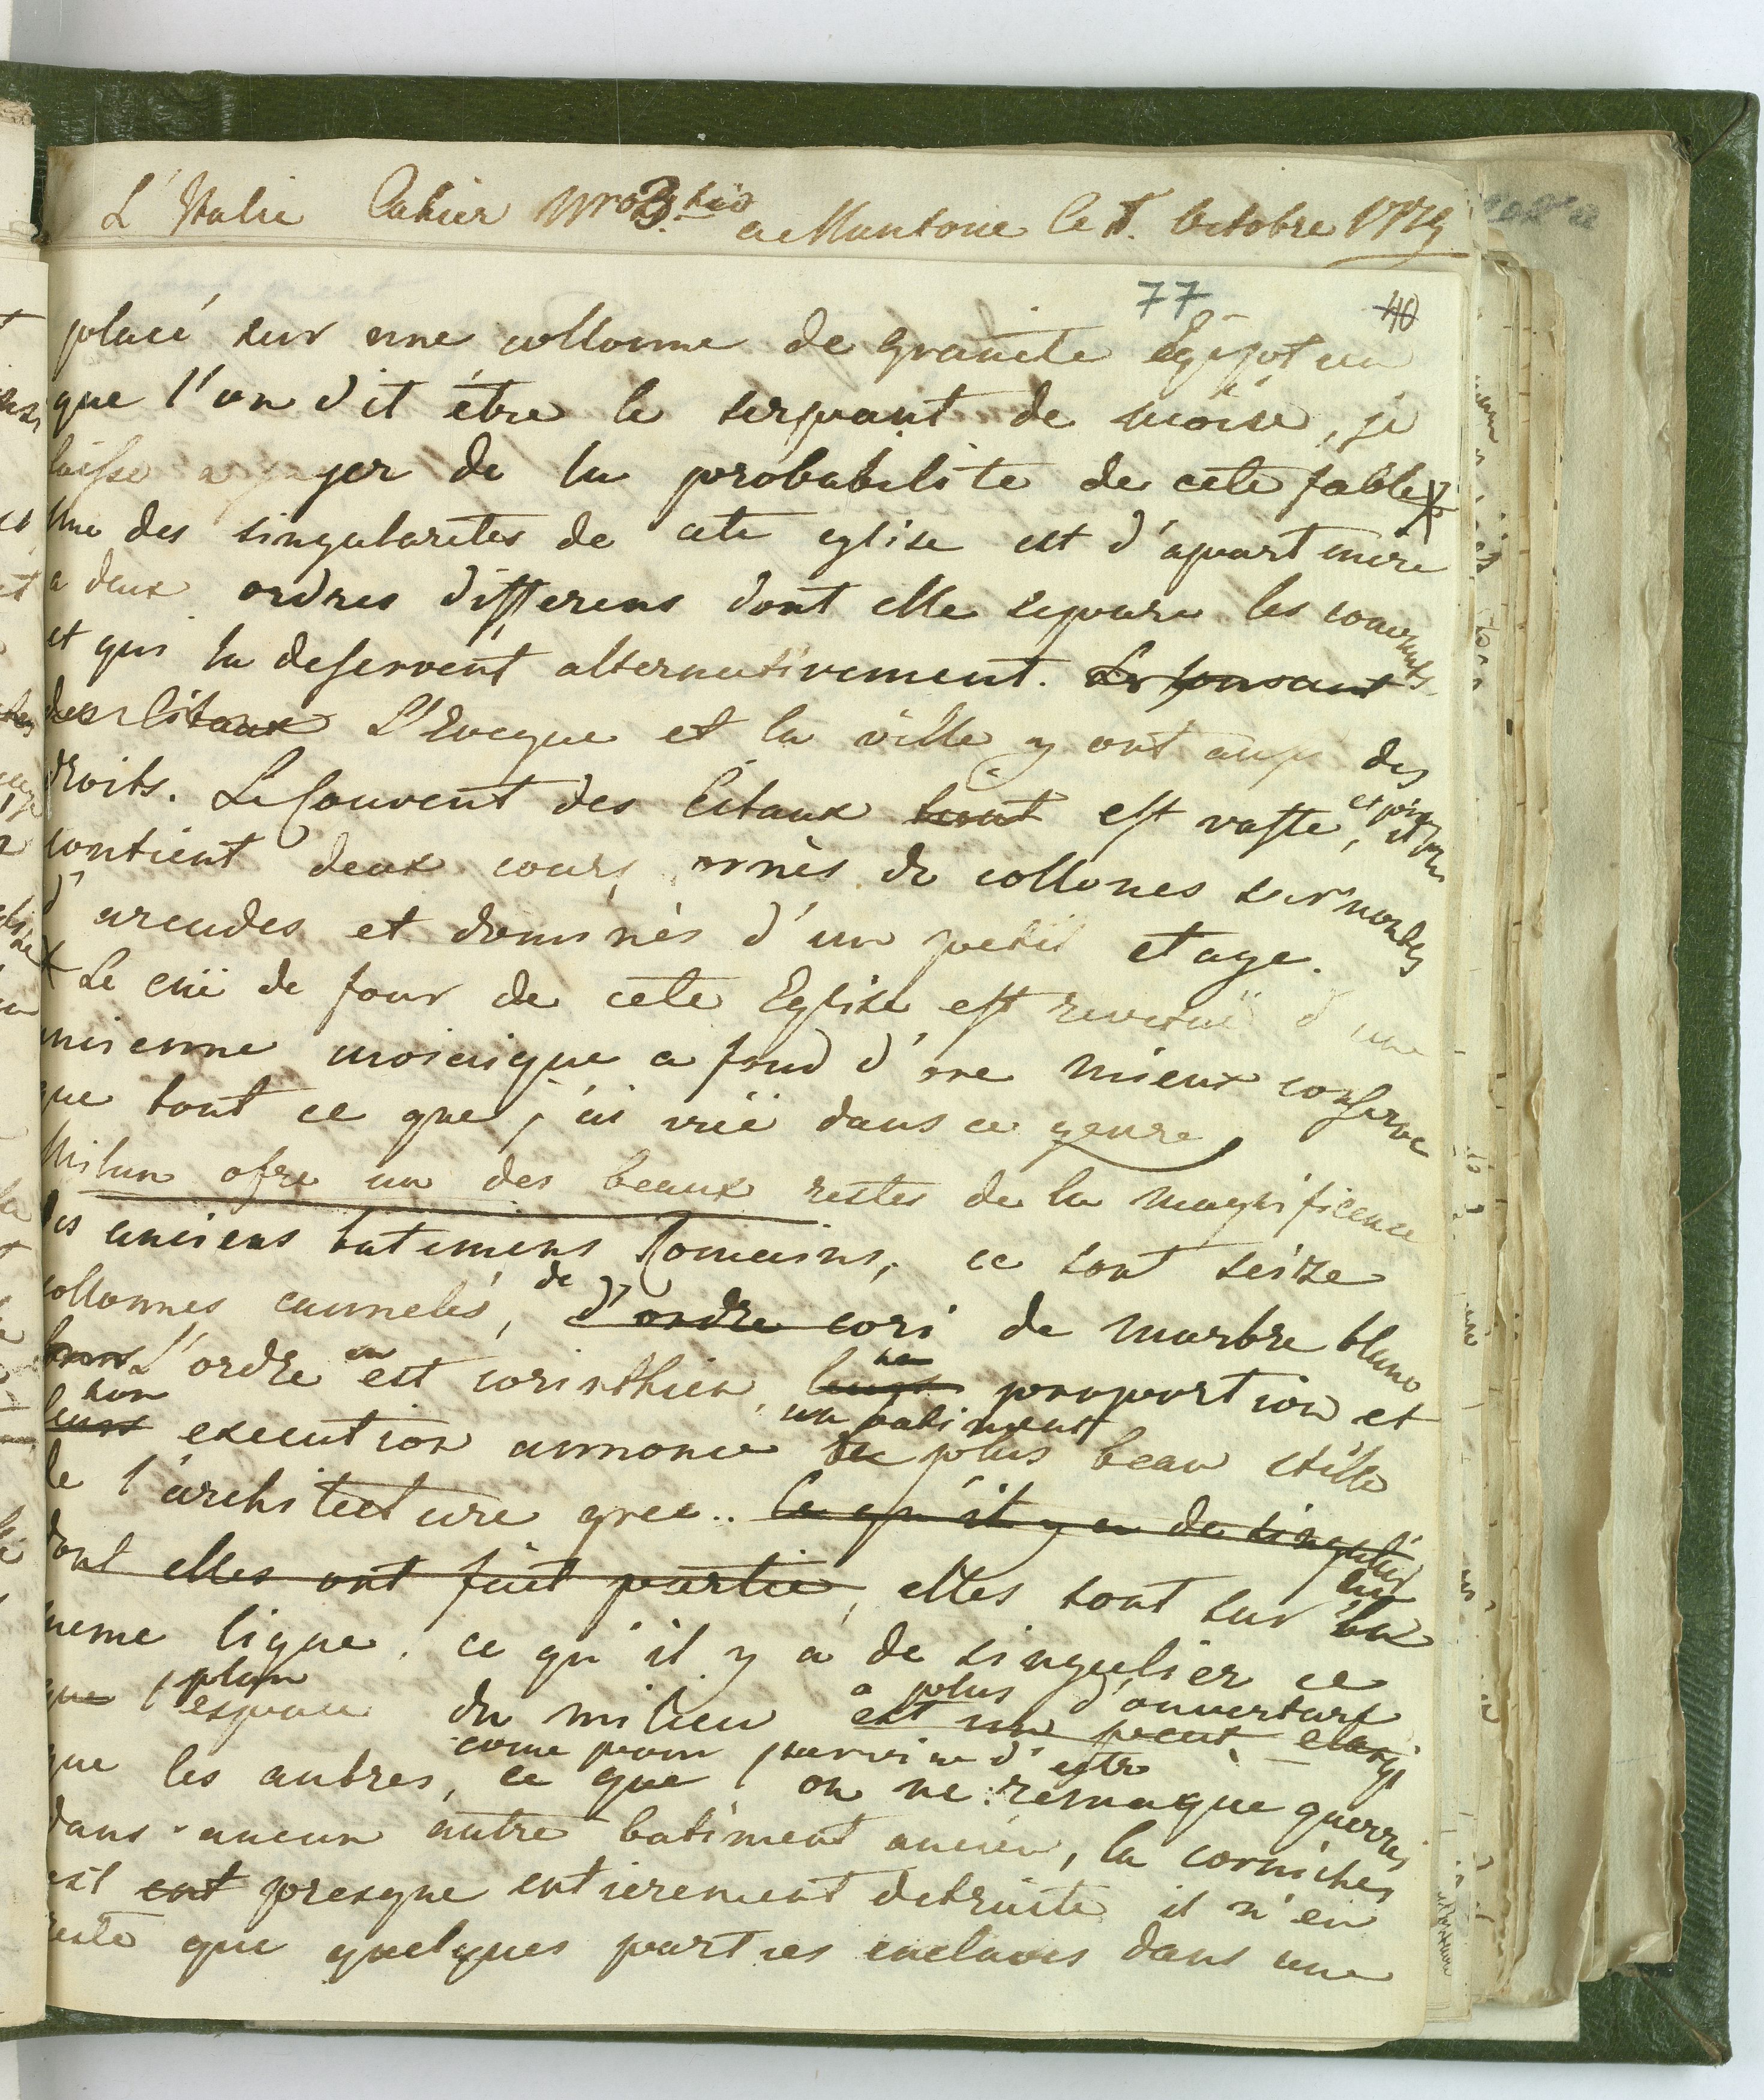 L'Italie Cahier Nro 3. a Mantoue le 1. Octobre 1779
77 40
placé sur une collonne de granite Egiptien
que l'on dit être le serpant de moise, je
laisse a juger de la probabilité de cete fable
Une des singularites de cete eglise est d'apartenire
a deux ordres differens dont elle separe les couvents
et qui la deservent alternativement. Le couvant
des Citaux L'Eveque et la ville y ont aussi des
droits. Le Couvent des Citaux est vaste, il
contient deux cours, ornès de collones surmontes
d'arcudes et dominès d'un petit etage.
Le cuë de four de cete Eglise est revetuë d'une
ancienne mosaique a fond d'ore mieux conserve
que tout ce que j'ai vuë dans ce genre,
Milan ofre un des beaux restes de la magnificence
des anciens batimens Romains, ce sont seize
collonnes cannelés, de d'ordre cori de marbre blanc
L'ordre en est corinthien, leur sa proportion et
leurs son execution annonce un batiment du plus beau stille
de l'architecture grec.. Ce qu'il y a de singulier
dont elles ont fait partie, elles sont sur la
meme ligne. ce qu'il y a de singulier ce
que l'espace du milieu a plus d'ouverture est un peut elargi
que les autres, ce que l'on ne remaque guerres
dans aucun autre batiment ancien, la corniches
est ent presque entierement detruite il n'en
reste que quelques parties enclaves dans une